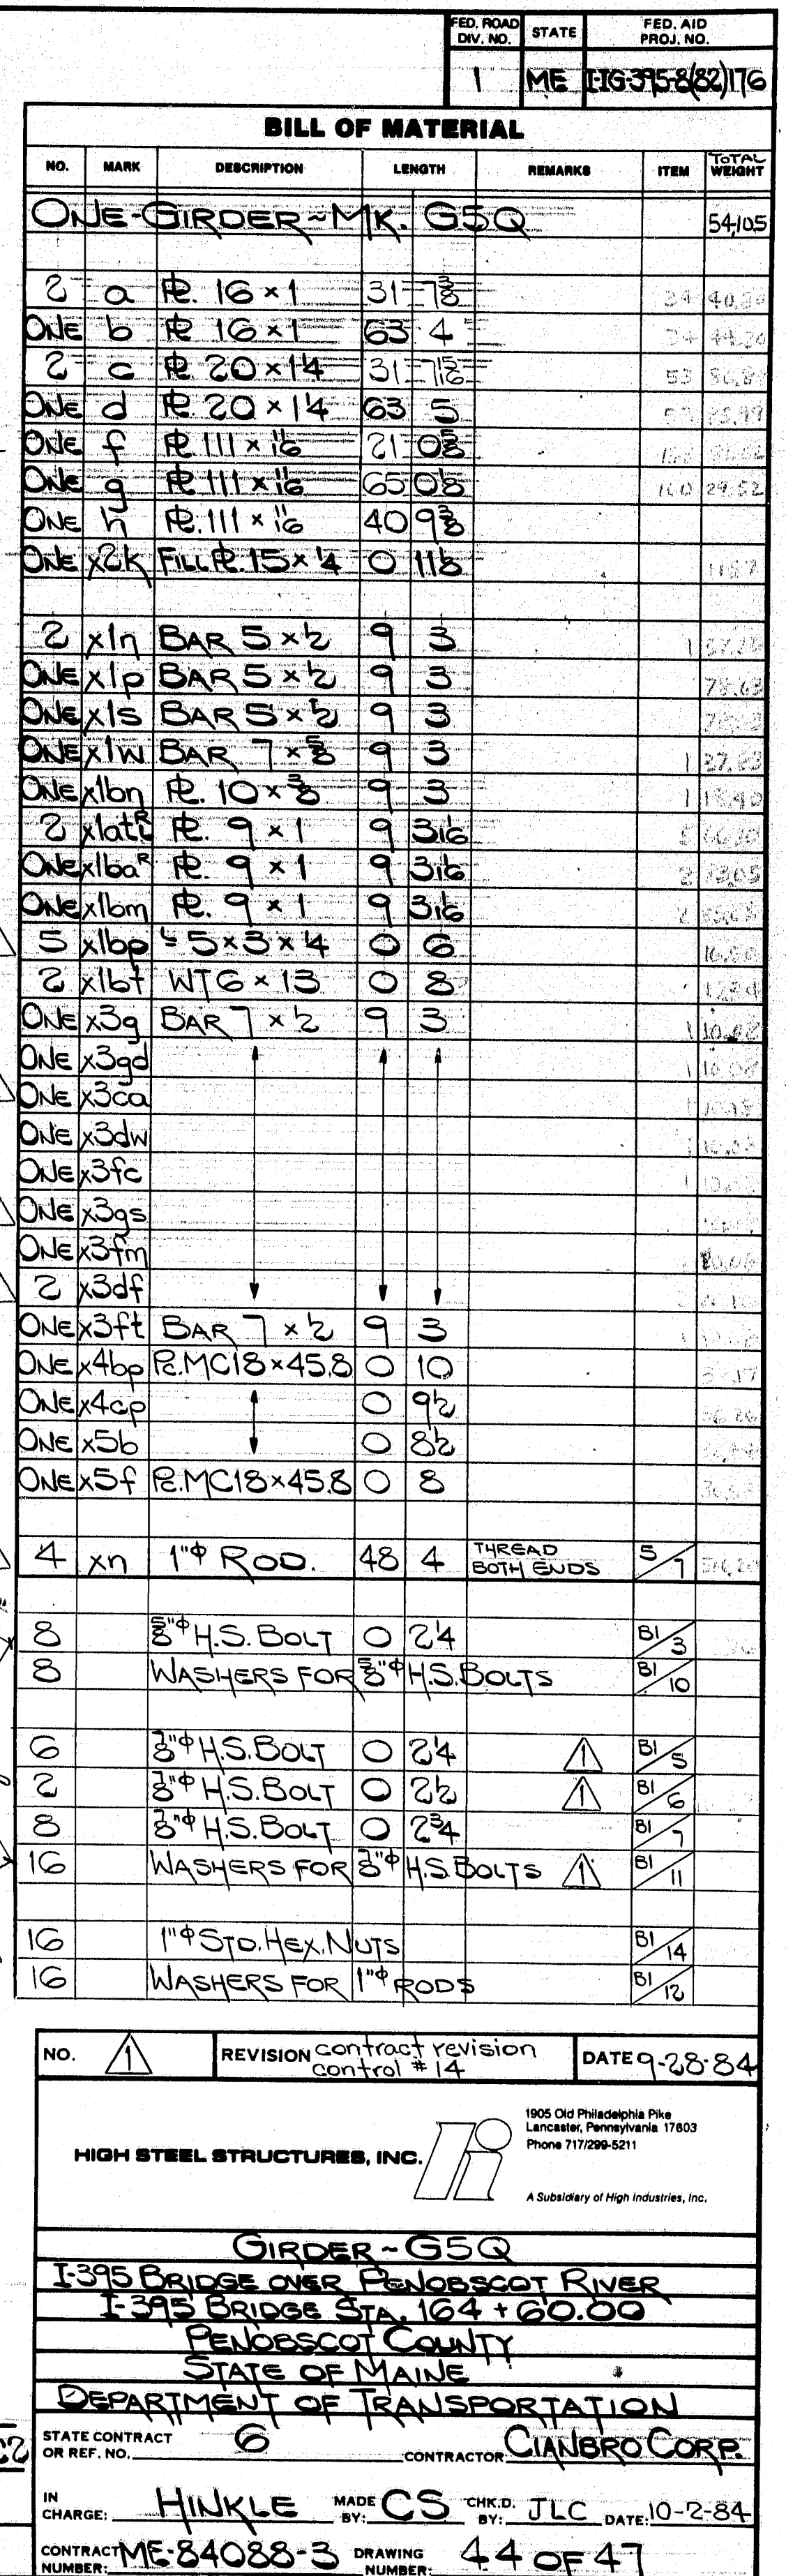 FED. ROAD DIV. NO. STATE FED. AID PROJ. NO.
1 ME I-IG-395-8(82)176
BILL OF MATERIAL
NO. MARK DESCRIPTION LENGTH REMARKS ITEM TOTAL WEIGHT
ONE-GIRDER~MK. G5Q 54,105
2 a PL. 16 × 1 31 7 3/8
ONE b PL 16 × 1 63 4
2 c PL 20 × 1 1/4 31 7 15/16
ONE d PL 20 × 1 1/4 63 5
ONE f PL 111 × 11/16 21 0 5/8
ONE g PL 111 × 11/16 65 0 1/8
ONE h PL. 111 × 11/16 40 9 3/8
ONE x2k FILL PL. 15 × 1/4 0 11 1/8
2 x1n BAR 5 × 1/2 9 3
ONE x1p BAR 5 × 1/2 9 3
ONE x1s BAR 5 × 1/2 9 3
ONE x1w BAR 7 × 5/8 9 3
ONE x1bn PL. 10 × 3/8 9 3
2 x1at R/L PL. 9 × 1 9 3 1/16
ONE x1ba R PL. 9 × 1 9 3 1/16
ONE x1bm PL. 9 × 1 9 3 1/16
5 x1bp L 5 × 3 × 1/4 0 6
2 x1bt WT6 × 13 0 8
ONE x3g BAR 7 × 1/2 9 3
ONE x3gd
ONE x3ca
ONE x3dw
ONE x3fc
ONE x3gs
ONE x3fm
2 x3df
ONE x3ft BAR 7 × 1/2 9 3
ONE x4bp PC. MC18 × 45.8 0 10
ONE x4cp 0 9 1/2
ONE x5b 0 8 1/2
ONE x5f PC. MC18 × 45.8 0 8
4 xn 1"φ ROD. 48 4 THREAD BOTH ENDS 5/7
8 5/8"φ H.S. BOLT 0 2 1/4 B1/3
8 WASHERS FOR 5/8"φ H.S. BOLTS B1/10
6 7/8"φ H.S. BOLT 0 2 1/4 1 B1/5
2 7/8"φ H.S. BOLT 0 2 1/2 1 B1/6
8 7/8"φ H.S. BOLT 0 2 3/4 B1/7
16 WASHERS FOR 7/8"φ H.S. BOLTS 1 B1/11
16 1"φ STD. HEX. NUTS B1/14
16 WASHERS FOR 1"φ RODS B1/12
NO. 1 REVISION contract revision control #14 DATE 9-28-84
1905 Old Philadelphia Pike
Lancaster, Pennsylvania 17603
Phone 717/299-5211
HIGH STEEL STRUCTURES, INC.
A Subsidiary of High Industries, Inc.
GIRDER ~ G5Q
I-395 BRIDGE OVER PENOBSCOT RIVER
I-395 BRIDGE STA. 164 + 60.00
PENOBSCOT COUNTY
STATE OF MAINE
DEPARTMENT OF TRANSPORTATION
STATE CONTRACT OR REF. NO. 6 CONTRACTOR CIANBRO CORP.
IN CHARGE: HINKLE MADE BY: CS CHK.D. BY: JLC DATE: 10-2-84
CONTRACT NUMBER: ME-84088-3 DRAWING NUMBER: 44 OF 47